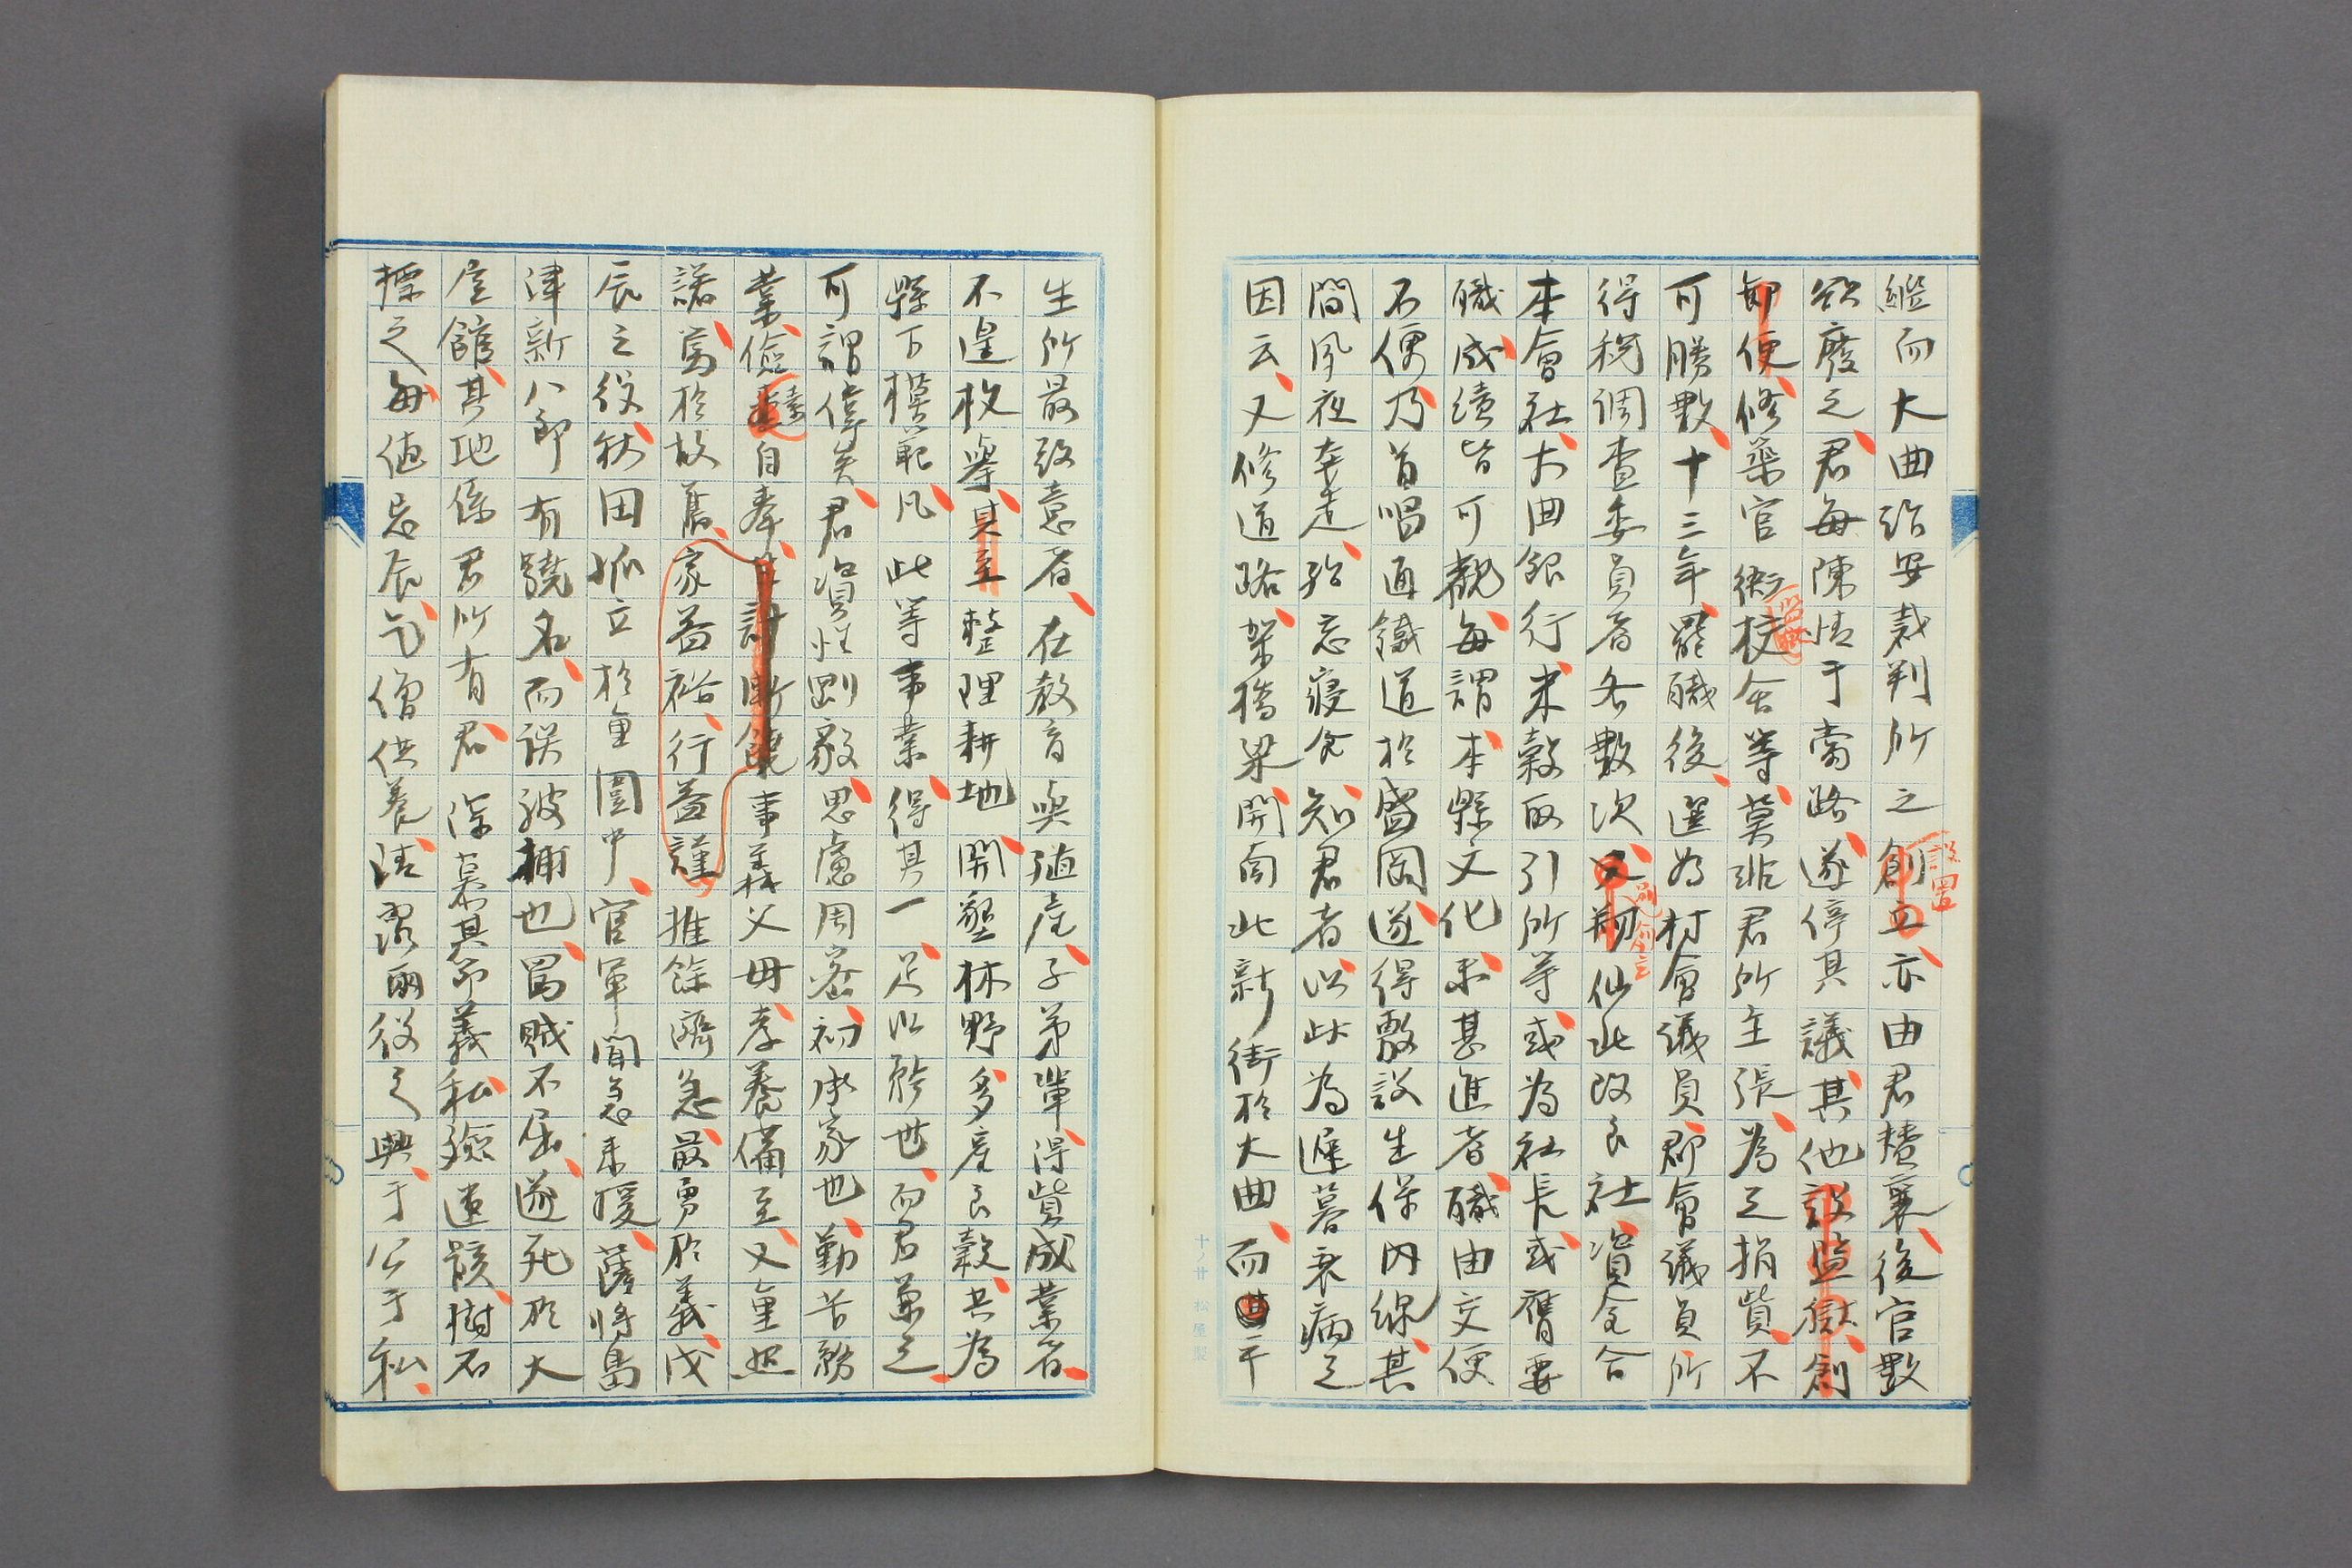 繼而大曲治安裁判所之創立亦由君賛襄後官數
設置
欲廢之君每陳情于當路遂停其議其他設監獄創
郵便修築官衙校舍等莫非君所主張為之捐貲不
可勝數十三年罷職後選為村會議員郡會議員所
得税調査委員者各數次又剏仙北改良社資金合
創立
本會社大曲銀行米穀取引所等或為社長或舊要
職成績皆可觀每謂本縣文化未甚進者職由交便
不便乃首唱通鐵道於盛岡遂得敷設生保內線其
間夙夜奔走殆忘寢食知君者以此為遲暮衰病之
因云又修道路架橋梁開南北新街於大曲而其平
十ノ廿 松屋製
生所最致意者在教育與殖產子弟輩得貲成業者
不遑枚擧其至整理耕地開墾林野多產良穀共為
縣下模範凡此等事業得其一足以矜世而君兼之
可謂偉矣君資性剛毅思慮周密初承家也勤苦務
業儉素自奉生計漸饒事義父母孝養備至又重然
諾篤於故舊家益裕行益謹推餘濟急最勇於義戊
辰之役秋田孤立於重圍中官軍聞急來援薩將島
津新八郎有驍名而誤被捕也罵賊不屈遂死於大
座館其地係君所有君深慕其節義私瘞遺骸樹石
標之每値忌辰乞僧供養清露兩役之興于公于私